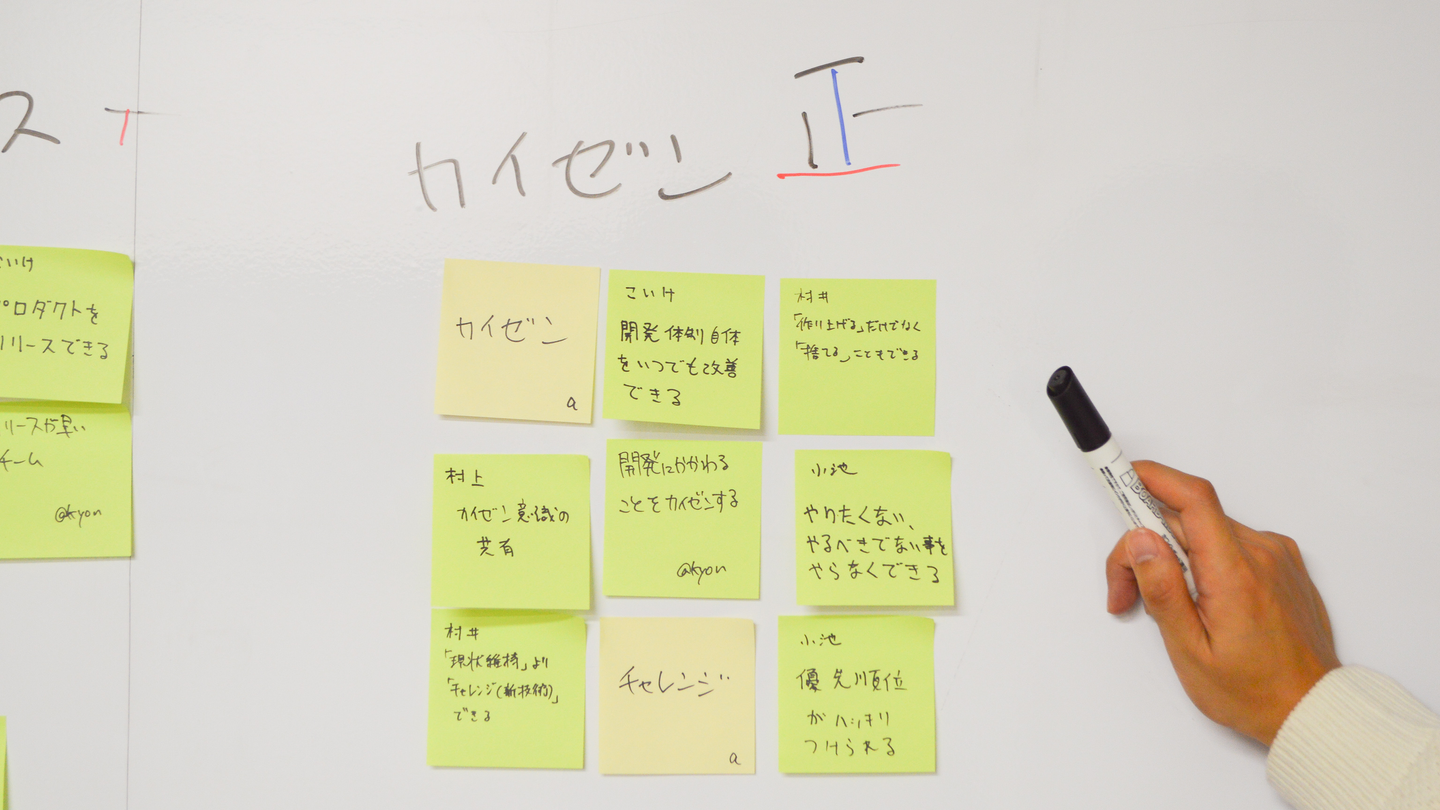 ス
カイゼン 正
いけ
プロダクトを
リリースできる
リースが早い
チーム
@kyon
カイゼン
a
こいけ
開発体制自体
をいつでも改善
できる
村井
「作り上げる」だけでなく
「捨てる」こともできる
村上
カイゼン意識の
共有
開発にかかわる
ことをカイゼンする
@kyon
小池
やりたくない、
やるべきでない事を
やらなくできる
村井
「現状維持」より
「チャレンジ(新技術)」
できる
チャレンジ
a
小池
優先順位
がハッキリ
つけられる
BOARD